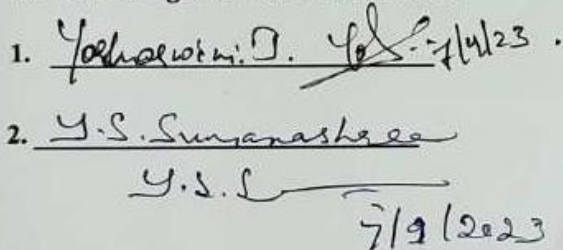 1. Yashaswini. D. 7/9/23.
2. Y.S. Sumanashree
Y.S.S
7/9/2023